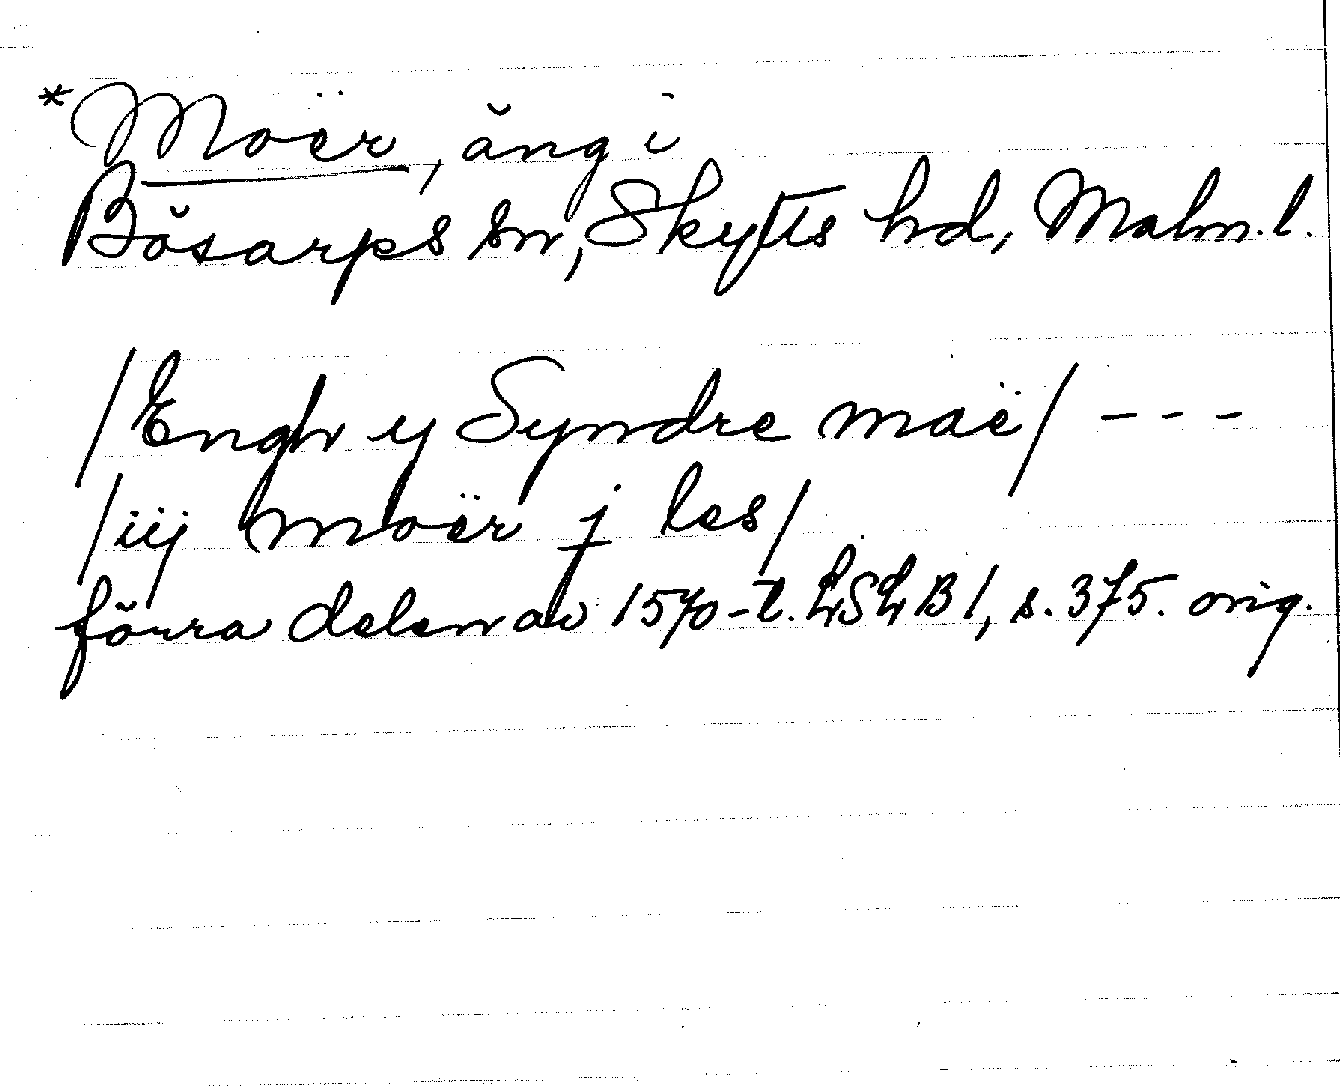 *Moër, äng i
Bösarps sn, Skytts hd, Malm. l.
/Engh y Syndre maë/ - - -
/iij moër j les/
förra delen av 1570-t. LSLB 1, s. 375. orig.